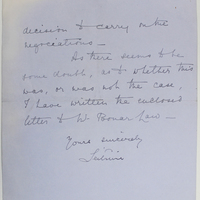 decision to carry on the
negociations —
As there seems to be
some doubt, as to whether this
was, or was not the case,
I have written the enclosed
letter to Mr Bonar Law —
Yours sincerely